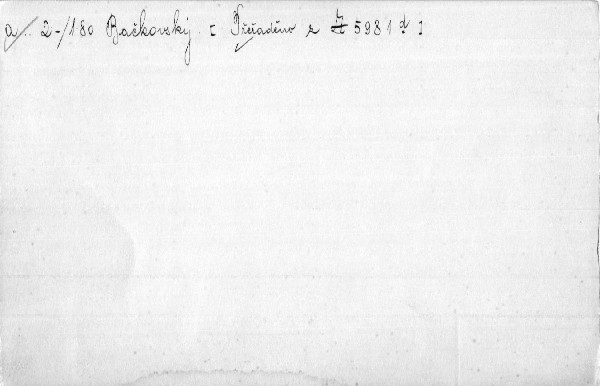 a/. 2-/180 Bačkovský. [ Přeřaděno z Ł 5981 d ]